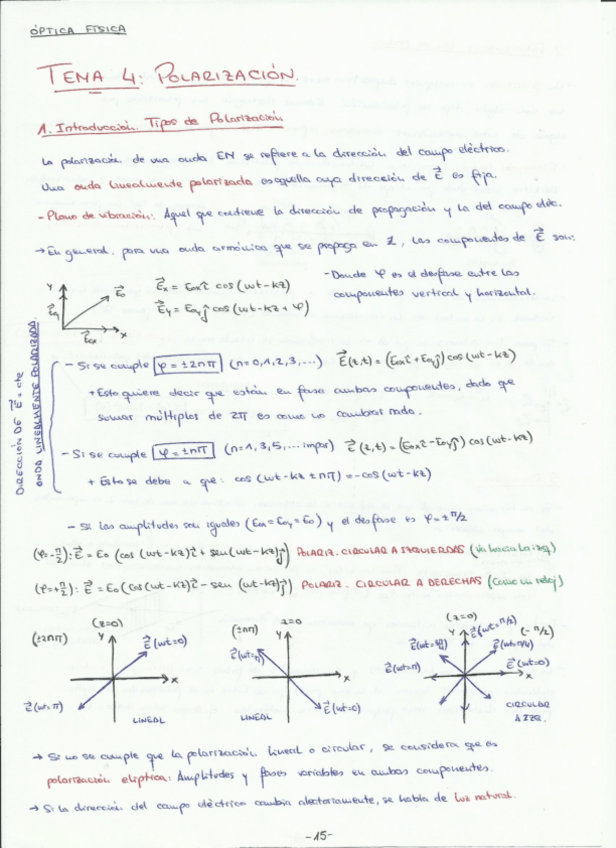 ÓPTICA FÍSICA
TEMA 4: POLARIZACIÓN.
1. Introducción. Tipos de Polarización
La polarización de una onda EM se refiere a la dirección del campo eléctrico.
Una onda linealmente polarizada es aquella cuya dirección de E⃗ es fija.
- Plano de vibración: Aquel que contiene la dirección de propagación y la del campo eléc.
→ En general, para una onda armónica que se propaga en Z, las componentes de E⃗ son:
Y E⃗oy E⃗o E⃗ox x
E⃗x = Eox î cos(ωt-kz)
E⃗y = Eoy ĵ cos(ωt-kz+φ)
- Donde φ es el desfase entre las
componentes vertical y horizontal.
DIRECCIÓN DE E⃗ = cte
ONDA LINEALMENTE POLARIZADA.
- Si se cumple φ = ±2nπ (n=0,1,2,3,...) E⃗(z,t) = (Eox î + Eoy ĵ) cos(ωt-kz)
+ Esto quiere decir que están en fase ambas componentes, dado que
sumar múltiplos de 2π es como no cambiar nada.
- Si se cumple φ = ±nπ (n=1,3,5,... impar) E⃗(z,t) = (Eox î - Eoy ĵ) cos(ωt-kz)
+ Esto se debe a que: cos(ωt-kz±nπ) = -cos(ωt-kz)
- Si las amplitudes son iguales (Eox=Eoy=Eo) y el desfase es φ=±π/2
(φ=-π/2): E⃗ = Eo(cos(ωt-kz)î + sen(ωt-kz)ĵ) POLARIZ. CIRCULAR A IZQUIERDAS (Va hacia la izq)
(φ=+π/2): E⃗ = Eo(cos(ωt-kz)î - sen(ωt-kz)ĵ) POLARIZ. CIRCULAR A DERECHAS (Como un reloj)
(z=0) (±2nπ) Y E⃗(ωt=0) x E⃗(ωt=π) LINEAL
z=0 (±nπ) Y E⃗(ωt=π) x E⃗(ωt=0) LINEAL
(z=0) Y E⃗(ωt=π/2) (-π/2) E⃗(ωt=π/4) E⃗(ωt=π) E⃗(ωt=0) x CIRCULAR
A IZQ.
→ Si no se cumple que la polarización lineal o circular, se considera que es
polarización elíptica: Amplitudes y fases variables en ambas componentes.
→ Si la dirección del campo eléctrico cambia aleatoriamente, se habla de luz natural.
-15-